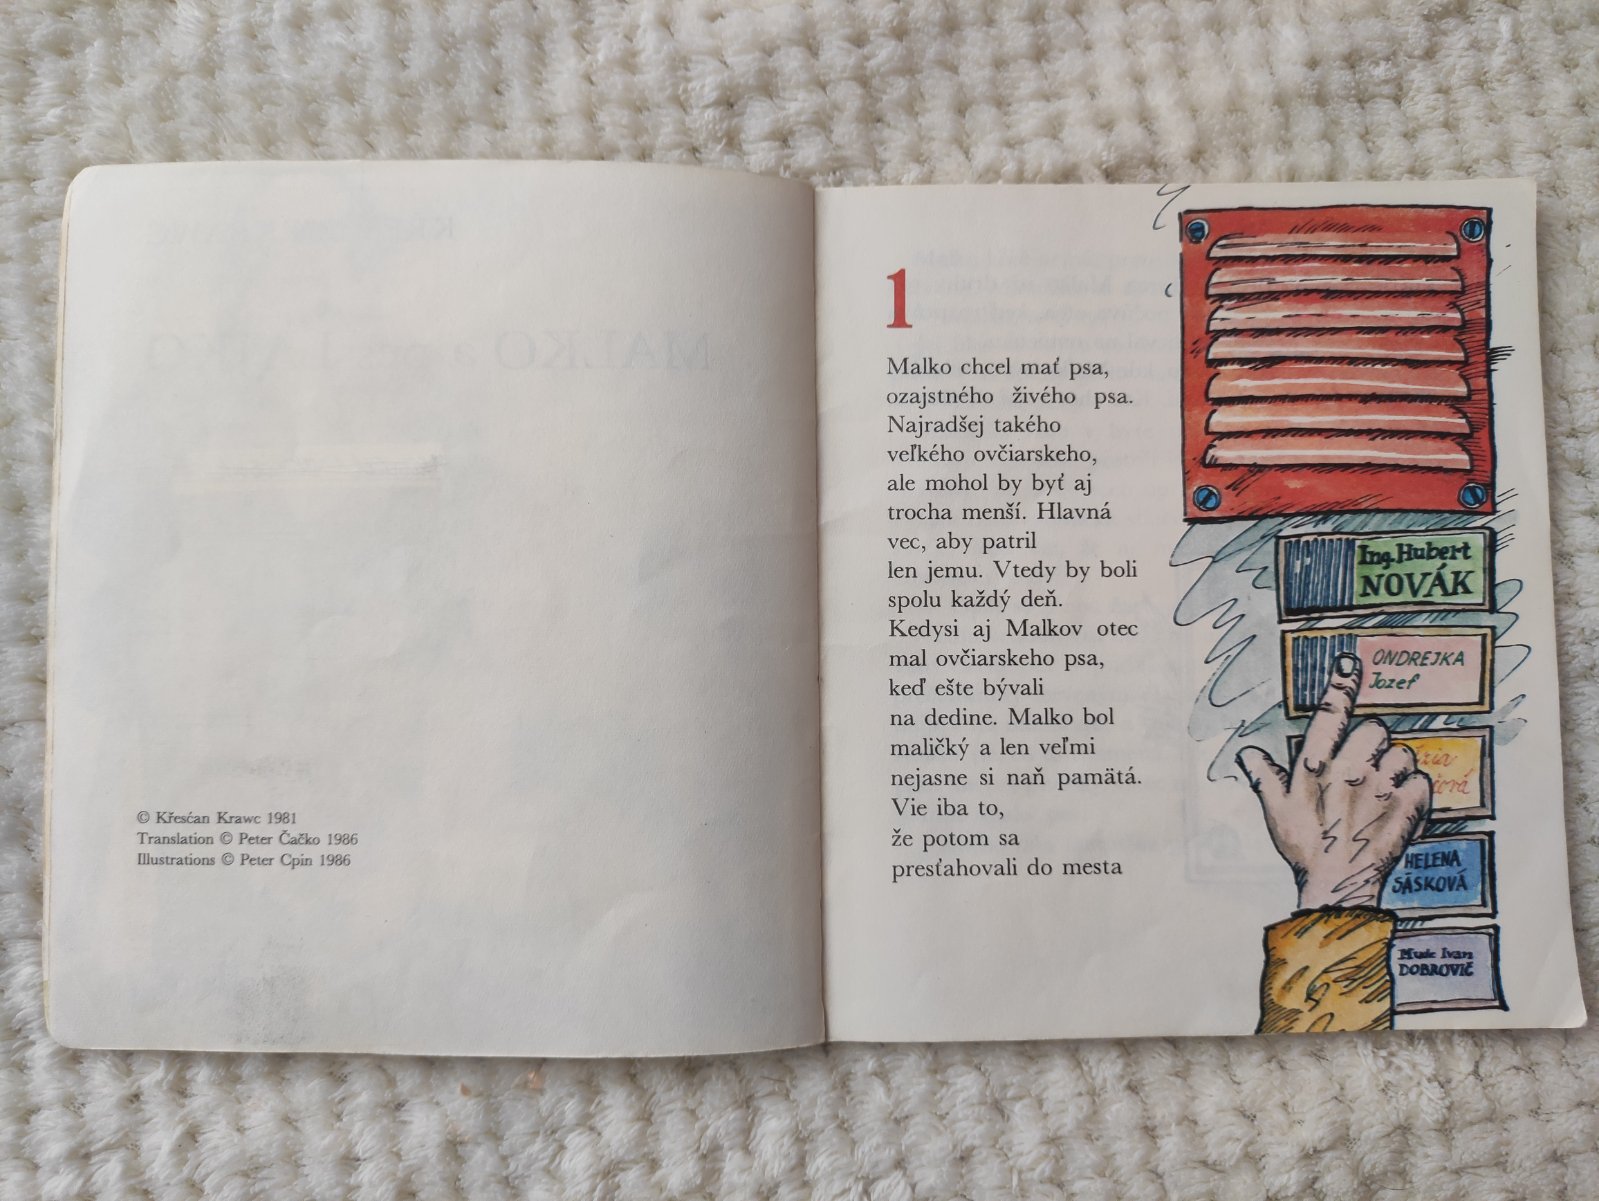 © Křesćan Krawc 1981
Translation © Peter Čačko 1986
Illustrations © Peter Cpin 1986
1
Malko chcel mať psa,
ozajstného živého psa.
Najradšej takého
veľkého ovčiarskeho,
ale mohol by byť aj
trocha menší. Hlavná
vec, aby patril
len jemu. Vtedy by boli
spolu každý deň.
Kedysi aj Malkov otec
mal ovčiarskeho psa,
keď ešte bývali
na dedine. Malko bol
maličký a len veľmi
nejasne si naň pamätá.
Vie iba to,
že potom sa
presťahovali do mesta
Ing. Hubert
NOVÁK
ONDREJKA
Jozef
HELENA
SÁSKOVÁ
Ivan
DOBROVIČ